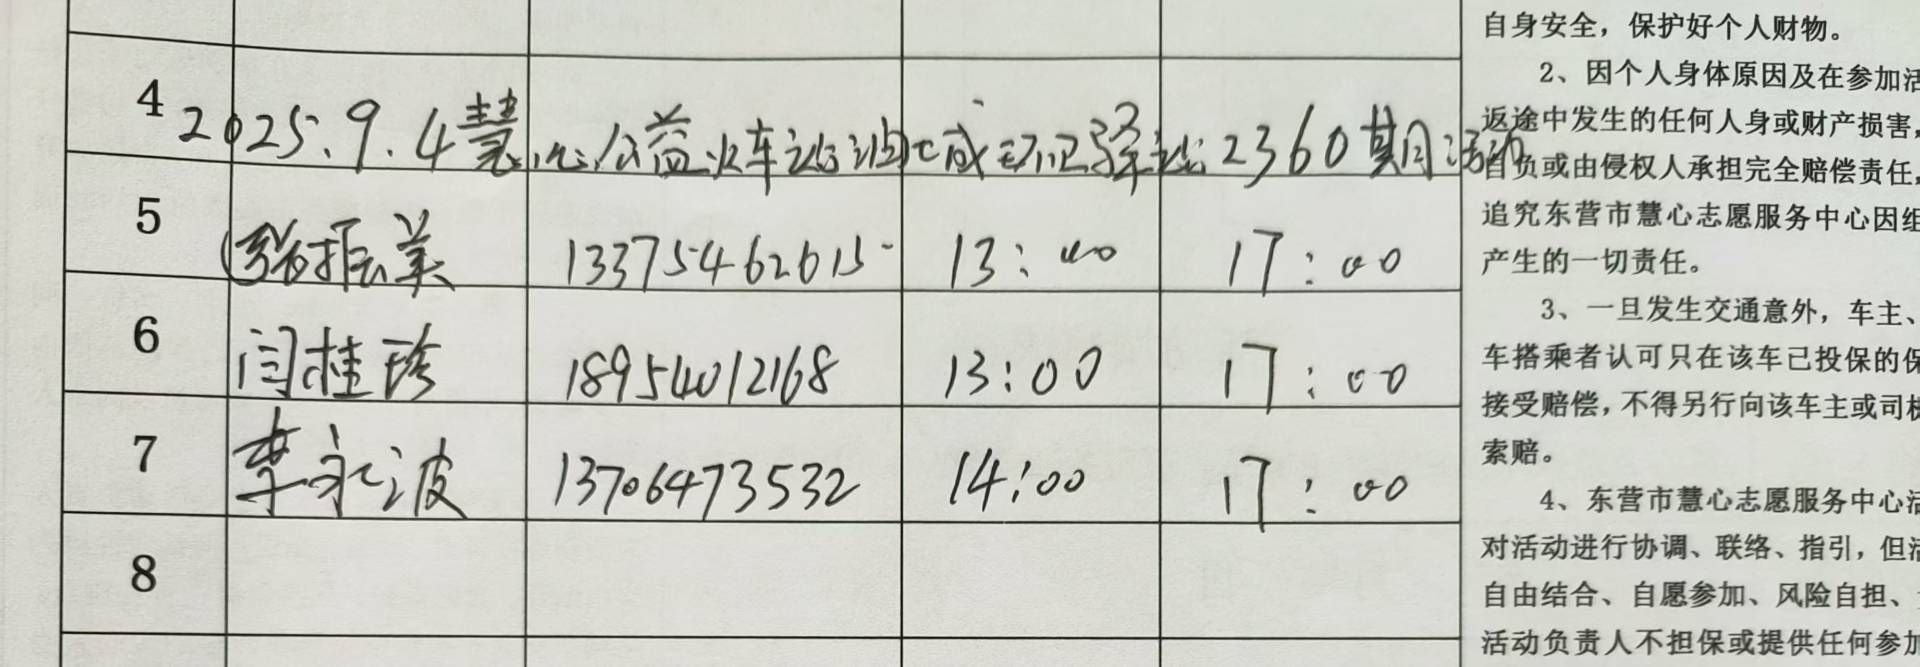 4 2025.9.4慧心公益火车站油城环卫驿站2360期活动
5 张振美 13375462615 13:00 17:00
6 闫桂珍 18954012168 13:00 17:00
7 李永波 13706473532 14:00 17:00
8
自身安全，保护好个人财物。
2、因个人身体原因及在参加活
返途中发生的任何人身或财产损害，
自负或由侵权人承担完全赔偿责任，
追究东营市慧心志愿服务中心因组
产生的一切责任。
3、一旦发生交通意外，车主、
车搭乘者认可只在该车已投保的保
接受赔偿，不得另行向该车主或司机
索赔。
4、东营市慧心志愿服务中心活
对活动进行协调、联络、指引，但活
自由结合、自愿参加、风险自担、
活动负责人不担保或提供任何参加